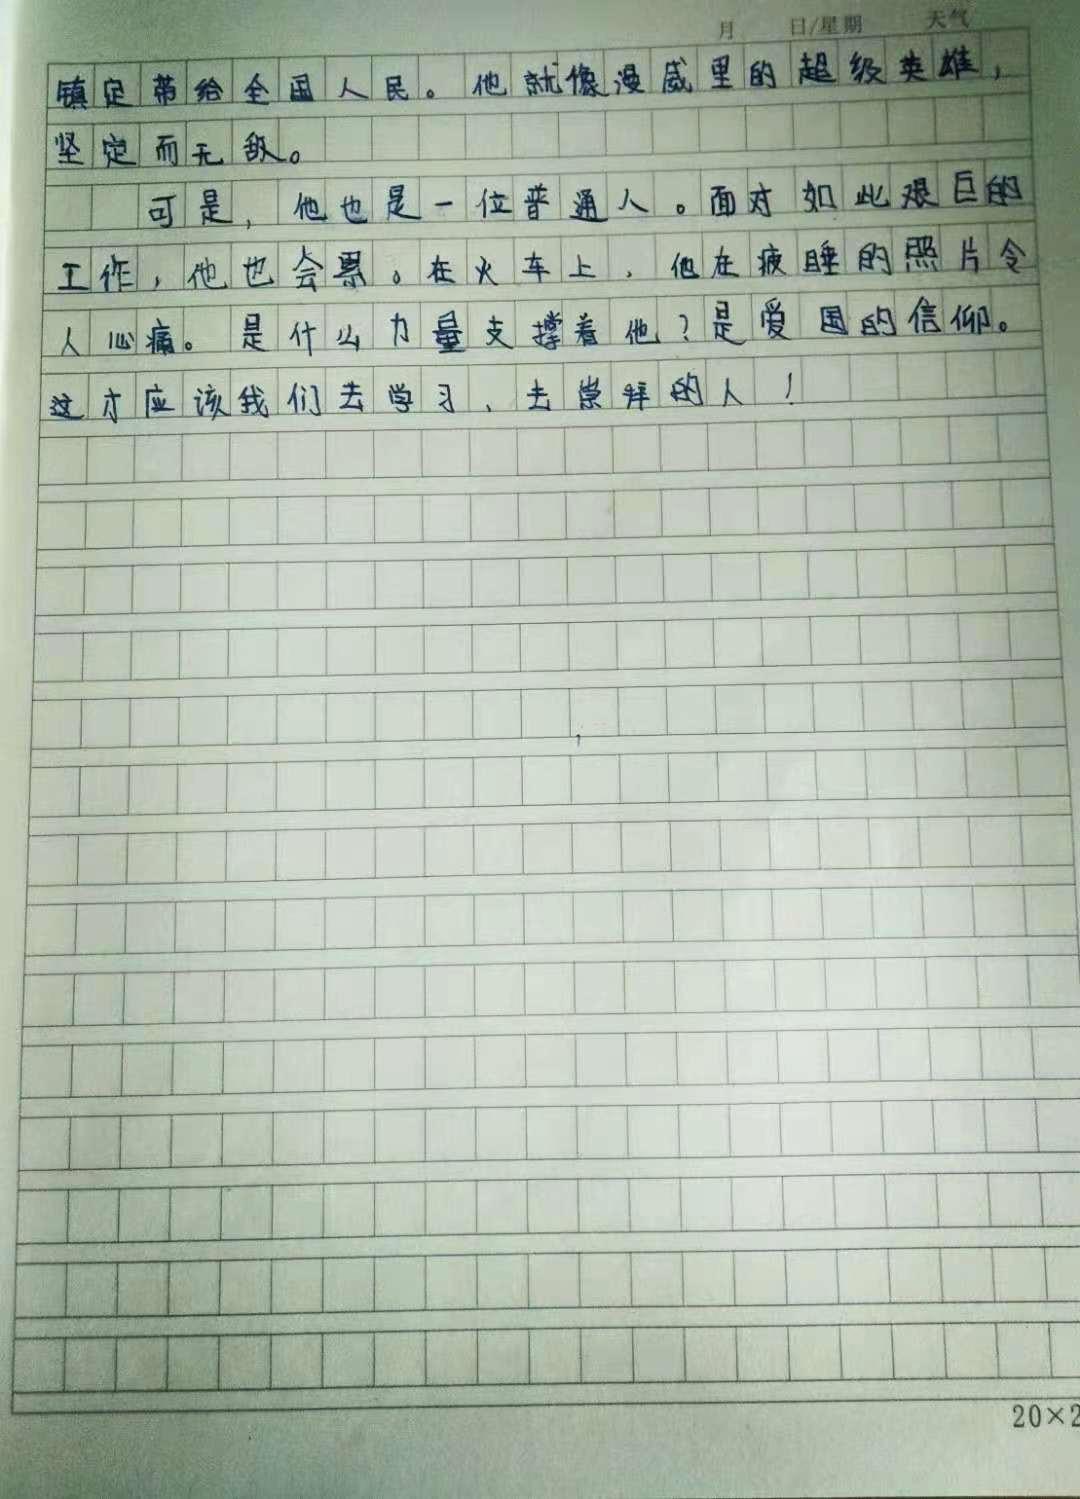 月 日/星期 天气
镇定带给全国人民。他就像漫威里的超级英雄，
坚定而无敌。
可是，他也是一位普通人。面对如此艰巨的
工作，他也会累。在火车上，他在疲睡的照片令
人心痛。是什么力量支撑着他？是爱国的信仰。
这才应该我们去学习、去崇拜的人！
20×2